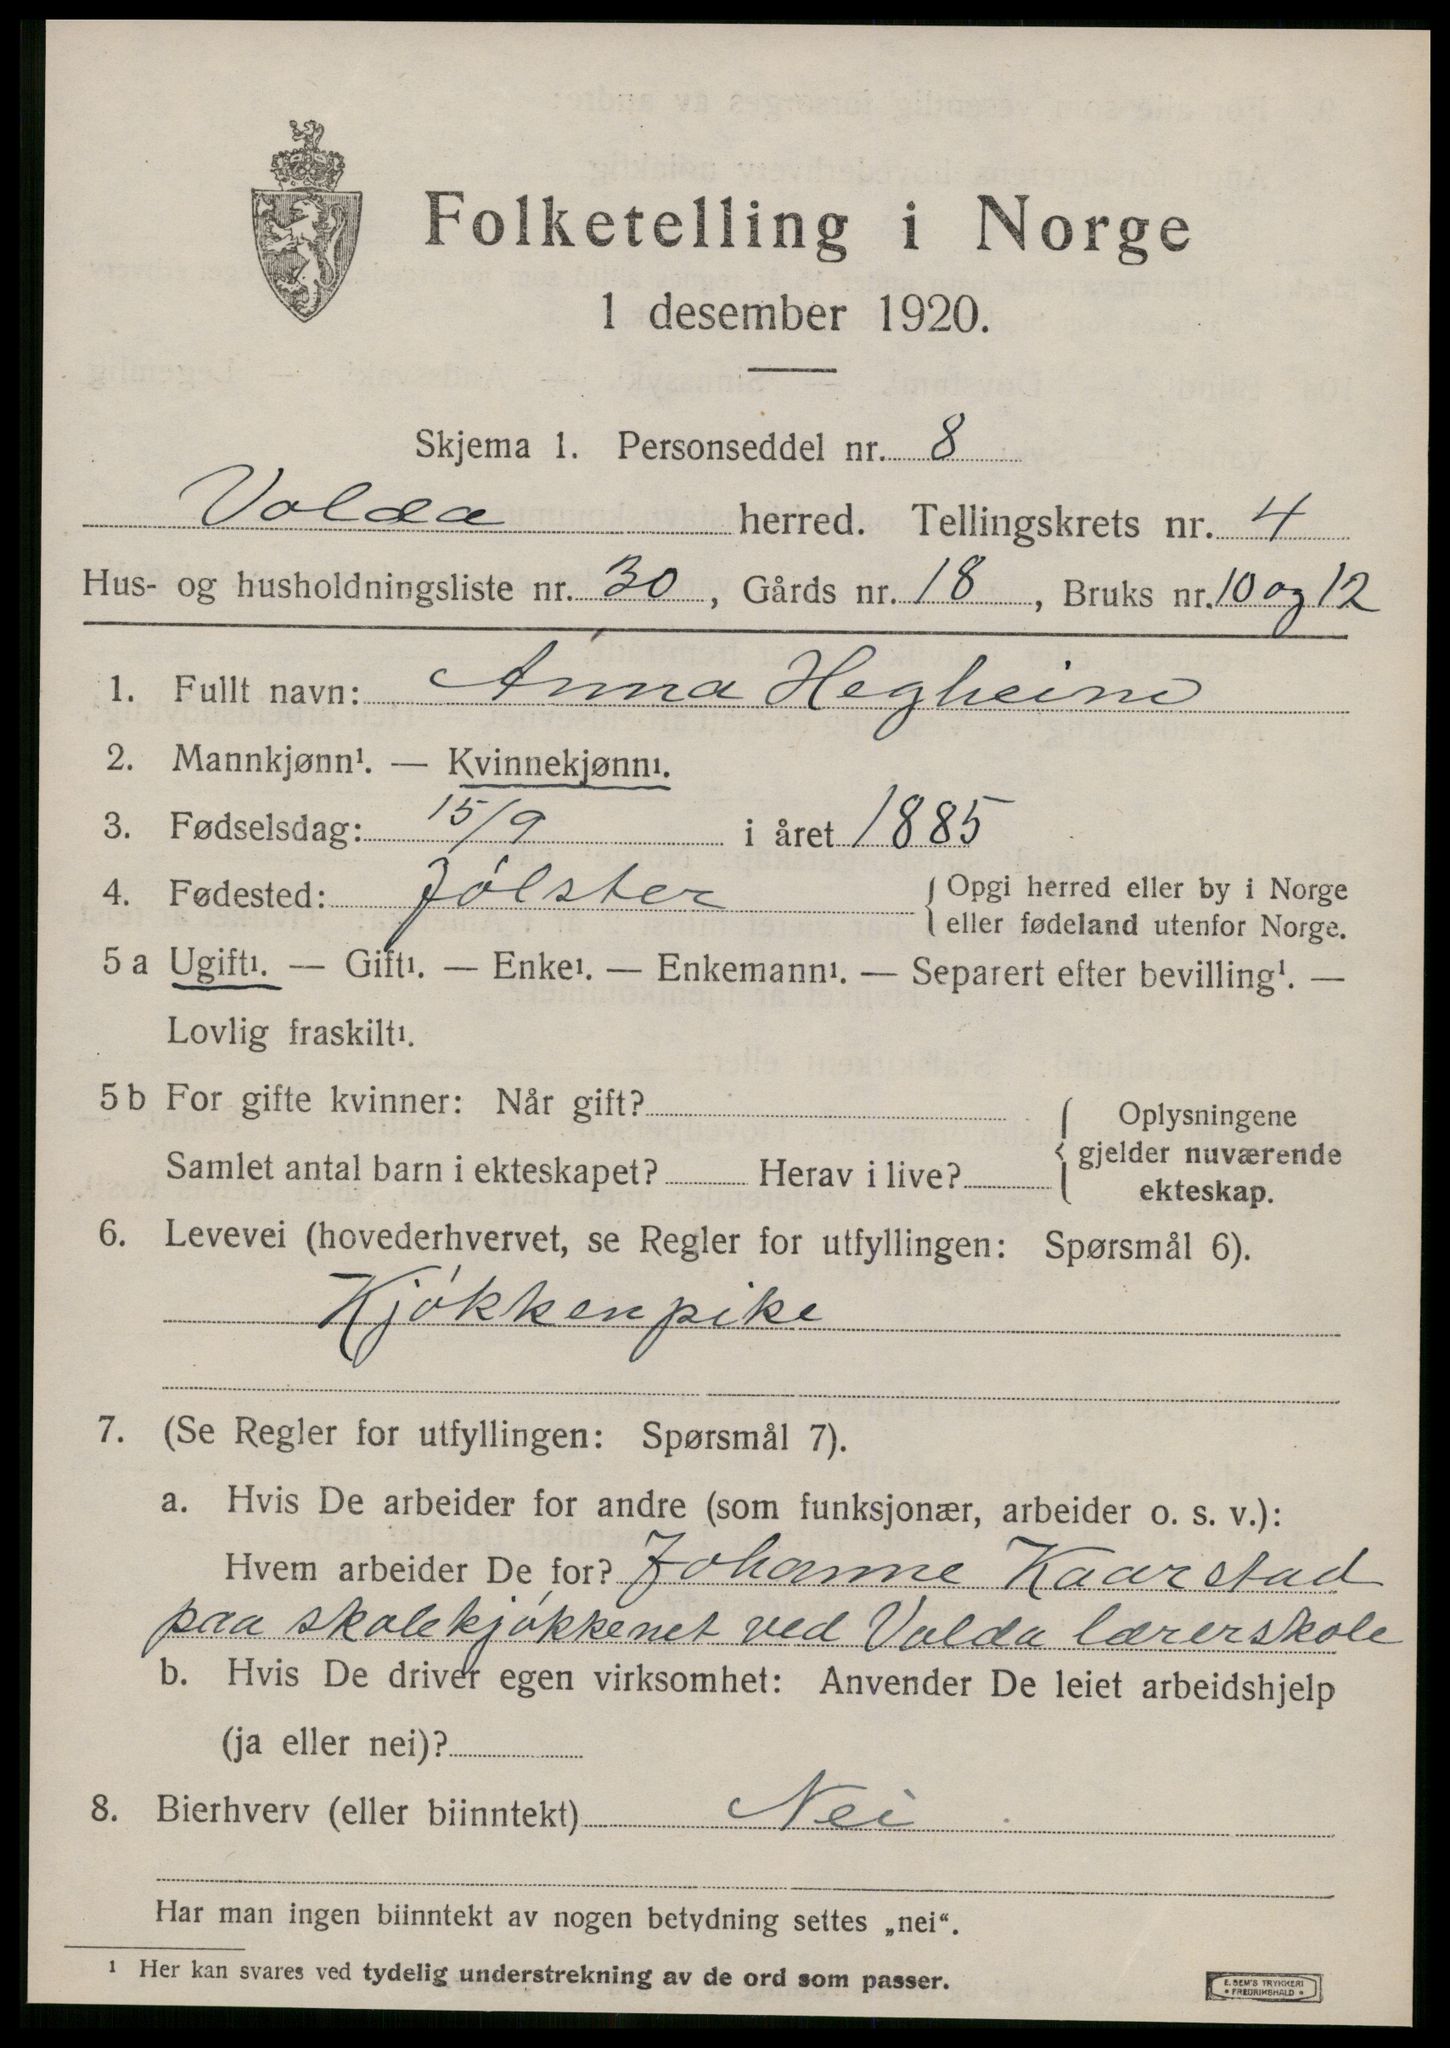 Folketelling i Norge
1 desember 1920.
Skjema 1. Personseddel nr. 8
Volda herred. Tellingskrets nr. 4
Hus- og husholdningsliste nr. 30, Gårds nr. 18, Bruks nr. 10 og 12
1. Fullt navn: Anna Hegheim
2. Mannkjønn¹. — Kvinnekjønn¹.
3. Fødselsdag: 15/9 i året 1885
4. Fødested: Jølster { Opgi herred eller by i Norge
eller fødeland utenfor Norge.
5 a Ugift¹. — Gift¹. — Enke¹. — Enkemann¹. — Separert efter bevilling¹. —
Lovlig fraskilt¹.
5 b For gifte kvinner: Når gift?
Samlet antal barn i ekteskapet? Herav i live?
{ Oplysningene
gjelder nuværende
ekteskap.
6. Levevei (hovederhvervet, se Regler for utfyllingen: Spørsmål 6).
Kjøkkenpike
7. (Se Regler for utfyllingen: Spørsmål 7).
a. Hvis De arbeider for andre (som funksjonær, arbeider o. s. v.):
Hvem arbeider De for? Johanne Kaarstad
paa skolekjøkkenet ved Volda lærerskole
b. Hvis De driver egen virksomhet: Anvender De leiet arbeidshjelp
(ja eller nei)?
8. Bierhverv (eller biinntekt) Nei
Har man ingen biinntekt av nogen betydning settes „nei“.
¹ Her kan svares ved tydelig understrekning av de ord som passer.
E. SEM'S TRYKKERI
• FREDRIKSHALD •